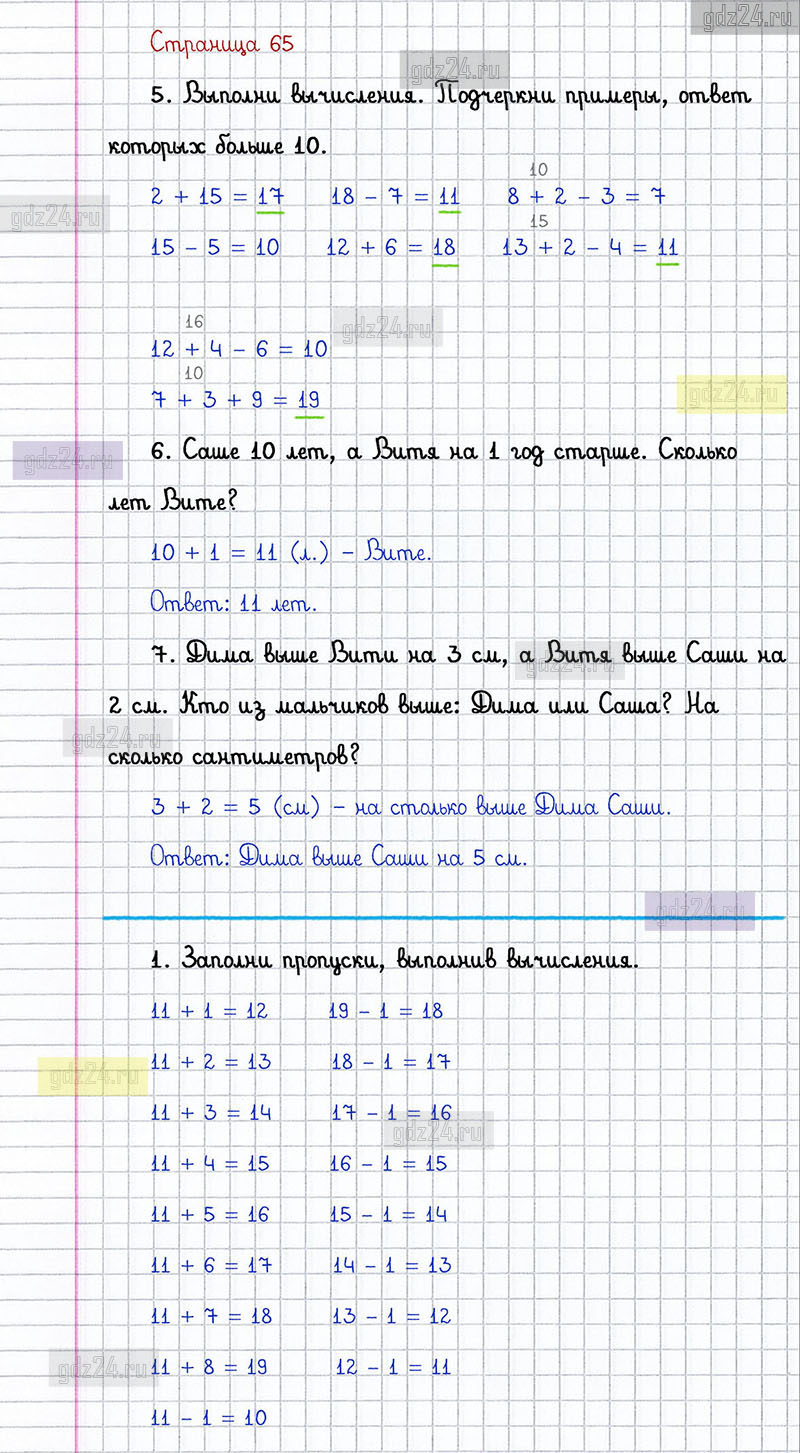 gdz24.ru
Страница 65
gdz24.ru
5. Выполни вычисления. Подчеркни примеры, ответ
которых больше 10.
10
2 + 15 = 17 18 - 7 = 11 8 + 2 - 3 = 7
gdz24.ru
15
15 - 5 = 10 12 + 6 = 18 13 + 2 - 4 = 11
16
gdz24.ru
12 + 4 - 6 = 10
10
gdz24.ru
7 + 3 + 9 = 19
6. Саше 10 лет, а Витя на 1 год старше. Сколько
gdz24.ru
лет Вите?
10 + 1 = 11 (л.) - Вите.
Ответ: 11 лет.
7. Дима выше Вити на 3 см, а Витя выше Саши на
gdz24.ru
2 см. Кто из мальчиков выше: Дима или Саша? На
gdz24.ru
сколько сантиметров?
3 + 2 = 5 (см) - на столько выше Дима Саши.
Ответ: Дима выше Саши на 5 см.
gdz24.ru
1. Заполни пропуски, выполнив вычисления.
11 + 1 = 12 19 - 1 = 18
11 + 2 = 13 18 - 1 = 17
gdz24.ru
11 + 3 = 14 17 - 1 = 16
gdz24.ru
11 + 4 = 15 16 - 1 = 15
11 + 5 = 16 15 - 1 = 14
11 + 6 = 17 14 - 1 = 13
11 + 7 = 18 13 - 1 = 12
gdz24.ru
11 + 8 = 19 12 - 1 = 11
11 - 1 = 10